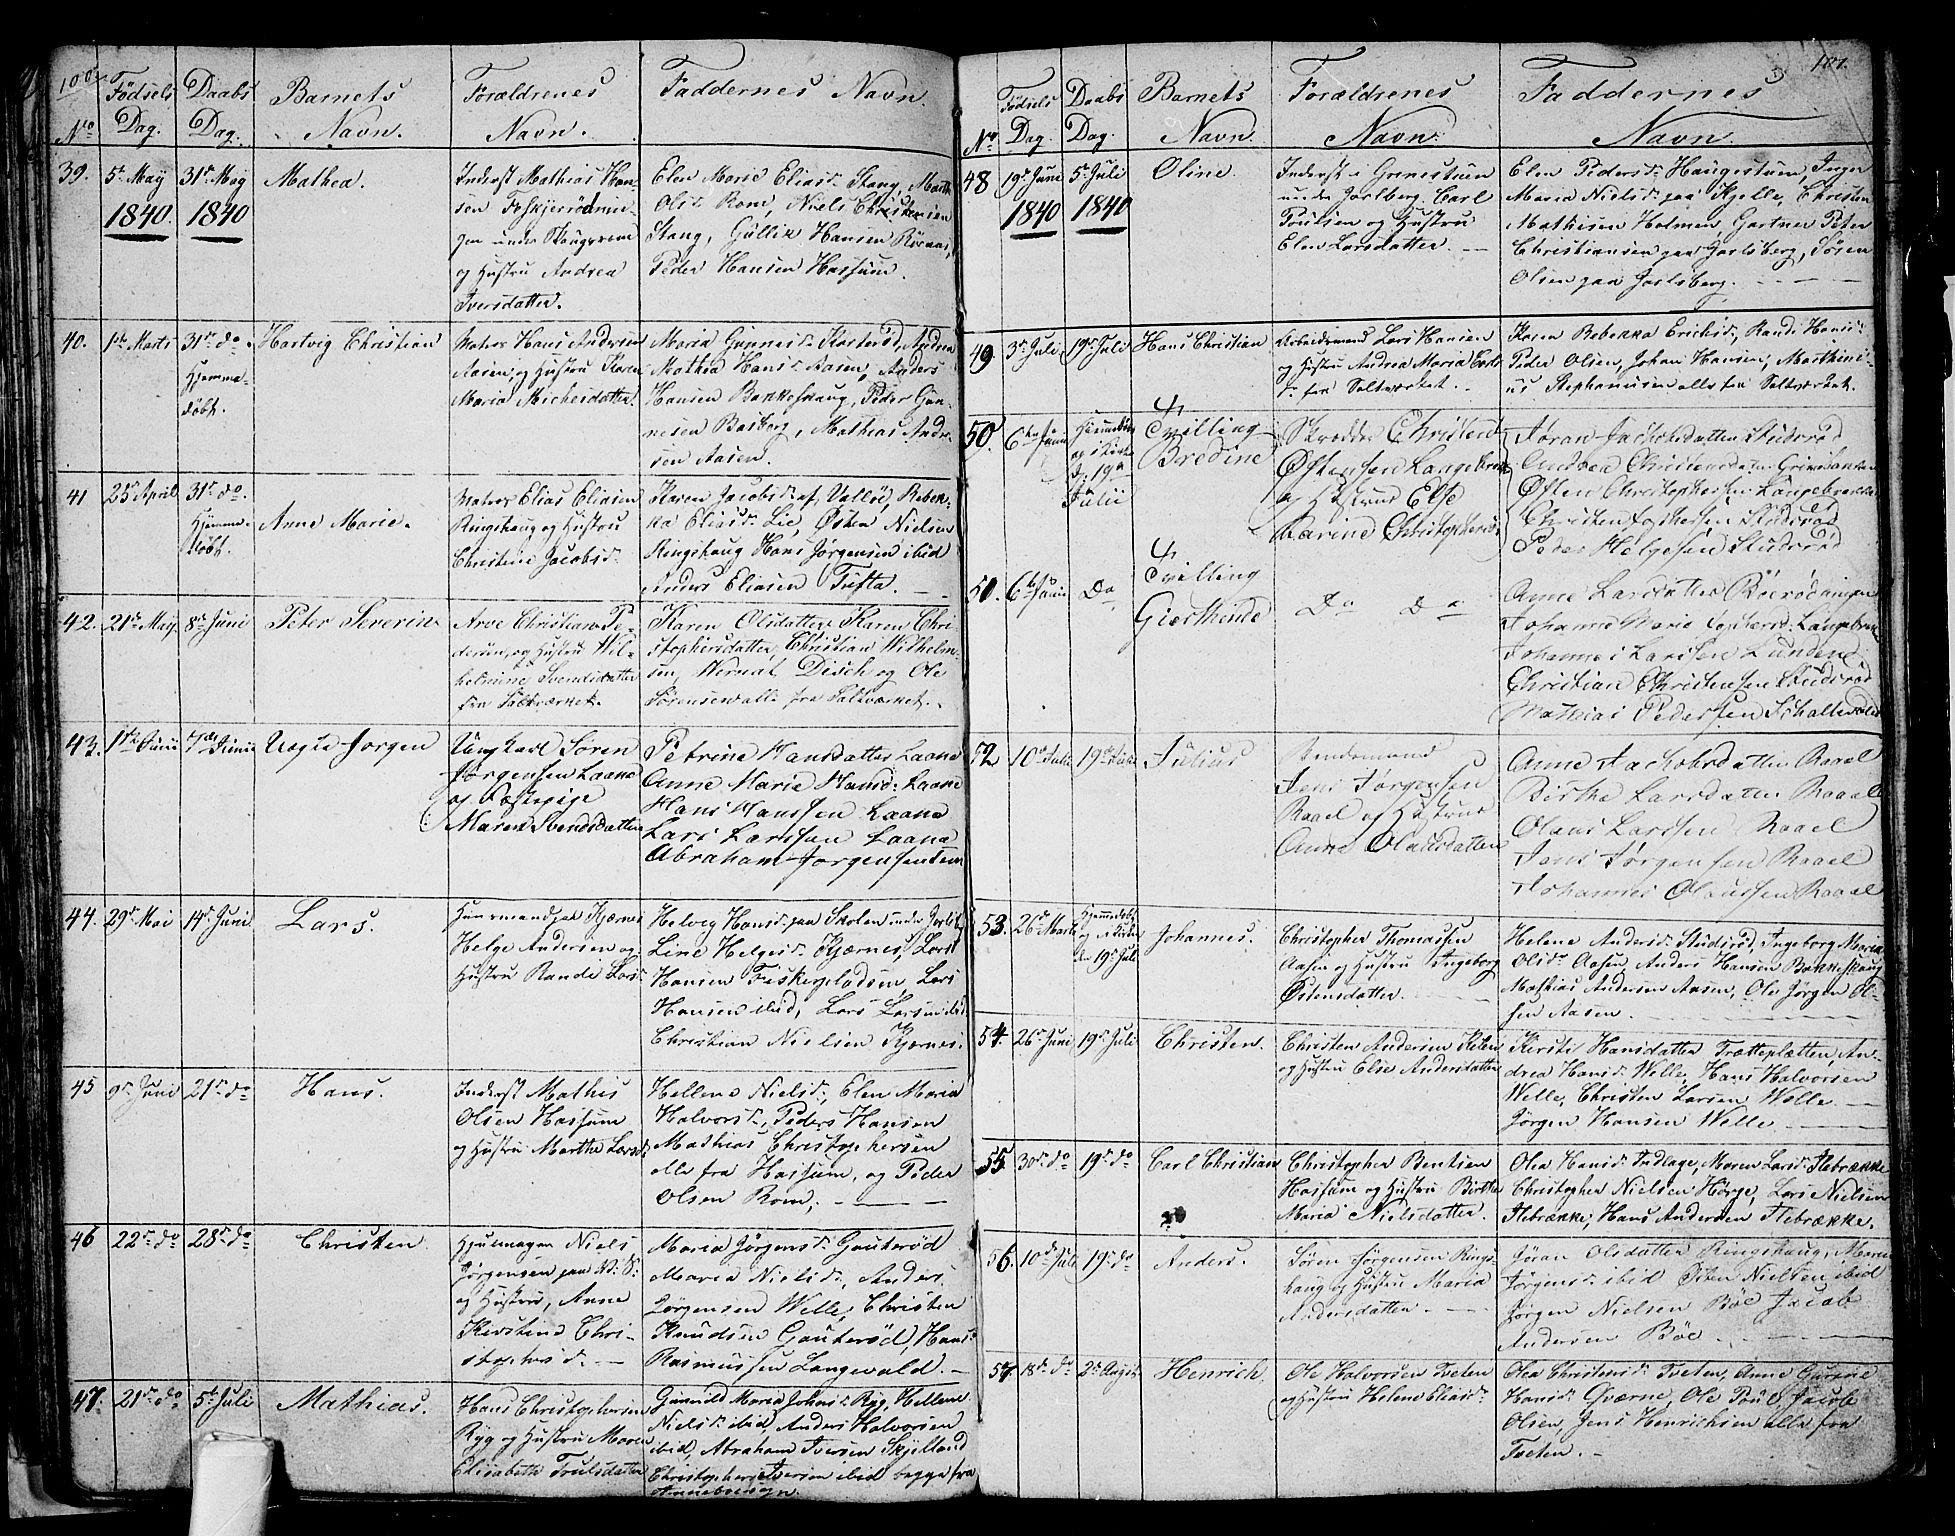 100.
No
Fødsels Dag.
Daabs Dag.
Barnets Navn.
Forældrenes Navn.
Faddernes Navn.
39.
5te May
1840.
31te May
1840
Mathea.
Inderst Mathias Han-
sen
under
og Hustru Andrea
Iversdatter.
Elen Marie Eliasd. Stang, Marthe
Olsd. Rom, Niels Christensen
Stang, Gullik Hansen
Peder Hansen Hassum.
40.
1te Marts
31te do
Hjemme-
døbt.
Hartvig Christian
Matros Hans Andersen
Aasen, og Hustru Karen
Maria
Maria Gunnesd. Andrea
Mathea Hansd. Aasen, Anders
Hansen Bakkeskaug, Peder Gun-
nesen Basberg, Mathias Andre-
sen Aasen.
41
25de April
31te do.
Hjemme-
døbt.
Anne Marie.
Matros Elias Eliasen
Ringshaug og Hustru
Christine Jacobsd.
Karen Jacobsd. af Vallø, Rebek-
ka Eliasd. Lie, Østen Nielsen
Ringshaug Hans Jørgensen ibid
Anders Eliasen Tufta.
42.
21de May
8de Juni
Peter Severin
Arve Christian Pe-
dersen, og Hustru Wil-
helmine Svendsdatter
fra Saltværket.
Karen Olsdatter Karen Chri-
stophersdatter, Christian Wilhelm-
sen, Wernat Disch og Ole
Sørensen alle fra Saltværket.
43.
1te Junii
7de Junii
Jørgen
Ungkarl Søren
Jørgensen Laane
og Fæstepige
Maren Svendsdatter
Petrine Hansdatter Laane
Anne Marie Hansd: Laane
Hans Hanssen Laane
Lars Larssen Laane
Abraham Jørgensen Sem
44.
29de Mai
14de Juni
Lars.
Huusmand paa Kjærnes
Helge Andersen og
Hustru Rande Lars.
Helvig Hansd. paa Skolen under Jarlsb.
Line Helgesd. Kjærnes, Lars
Hansen Fiskerpladsen, Lars
Hansen ibid, Lars Larsen ibid
Christian Nielsen Kjærnes.
45
9de Juni
21de do
Hans.
Inderst Mathis
Olsen Hassum
og Hustru Marthe Larsd.
Hellene Nielsd., Elen Maria
Halvorsd., Peders Hansen
Mathias Christophersen
alle fra Hassum, og Peder
Olsen Rom.
46
22de do
28de do
Christen
Hjulmager Niels
Jørgensen paa
og Hustru, Anne
Kirstine Chri-
stophersd.
Maria Jørgensd. Gauterød
Maria Nielsd., Anders
Jørgensen Welle, Christen
Knudsen Gauterød, Hans
Rasmussen Langevald.
47.
21de do
5te Juli
Mathias.
Hans Christophersen
Ryg og Hustru Maren
Elisabeth Trulsdatter
Gunnild Maria Johnsd. Ryg, Hellene
Nielsd. ibid, Anders Halvorsen
ibid, Abraham Iversen Skjelland
Christopher Iversen ibid begge fra
101.
No
Fødsels Dag.
Daabs Dag.
Barnets Navn.
Forældrenes Navn.
Faddernes Navn.
48
19de Juni
1840
5te Juli
1840
Oline
Inderst i Grenestuen
under Jarlberg. Carl
Poulsen og Hustru
Elen Larsdatter.
Elen Pedersd. Haugestuen, Inger
Maria Nielsd. paa Kjelle, Christen
Mathisen Holmen, Gartner Peter
Christiansen paa Jarlsberg, Søren
Olsen paa Jarlsberg.
49.
3de Juli
19de Juli
Hans Christian
Arbeidsmand Lars Hansen
og Hustru Andrea Maria
fra Saltværket.
Karen Bebekka Erichsd., Randi Hansd.
Peder Olsen, Johan Hansen, Marthini-
us Stephanisen alle fra Saltværket.
50.
6te Junii
Hjemmedøbt
og i Kirke
d. 19de
Julii
Tvilling
Bredine
Skrædder Christen
Østensen Langebrekke
og Hustrue Else
Karine Christophersd.
Jøran Jachobsdatter Studsrød
Andrea Christensdatter
Østen Christophersen Langebrekke
Christen Jachobsen Studsrød
Peder Helgesen Studsrød
50.
6te Junii
Do
Tvilling
Giæthinde
Do Do
Anne Larsdatter
Johanne Marie Langebrek
Johannes Larssen Lunden
Christian Christensen Studsrød
Mathias Pedersen
52
10de Julii
19de Julii
Julius
Bondemand
Jens Jørgensen
Raael og Hustrue
Anne Olausdatter
Anne Jachobsdatter Raael
Birthe Larsdatter Raael
Olaus Larssen Raael
Jens Jørgensen Raael
Johannes Olaussen Raael
53.
26de Marts
Hjemmedøbt
og i Kirke
de 19de Juli
Johannes.
Christopher Thomassen
Aasen og Hustru Ingeborg
Østensdatter.
Helene Andersd. Studsrød, Ingeborg Maria
Olsdr. Aasen, Anders Hansen Bakkeskaug
Mathias Andersen Aasen, Ole Jørgen Ol-
sen Aasen.
54.
26de Juni
19de Juli
Christen.
Christen Andersen
og Hustru Else Andersdatter
Kirsti Hansdatter Trætteplætten, An-
drea Hansd. Welle, Hans Halvorsen
Welle, Christen Larsen Welle.
Jørgen Hansen Welle.
55
30de do
19de do
Carl Christian
Christopher Bentsen
Hassum og Hustru Birthe
Maria Nielsdatter.
Olea Hansd. Indlage, Maren Larsd. Ilebrække
Christopher Nielsen Horge, Lars Nielsen
Ilebrække, Hans Andersen Ilebrække.
56.
10de Juli
19de do
Anders.
Søren Jørgensen Rings-
haug og Hustru Maria
Andersdatter.
Jøran Olsdatter Ringshaug, Maren
Jørgensd. ibid Iten Nielsen ibid
Jørgen Nielsen Böe Jacob
Andersen Böe.
57.
18de do
2de August
Henrich.
Ole Halvorsen Tveten
og Hustru Helene Eliasd.
Olea Christensd. Tveten, Anne Gurine
Hansd. Gværne, Ole Poul, Jacob
Olsen, Jens Henrichsen alle fra
Tveten.